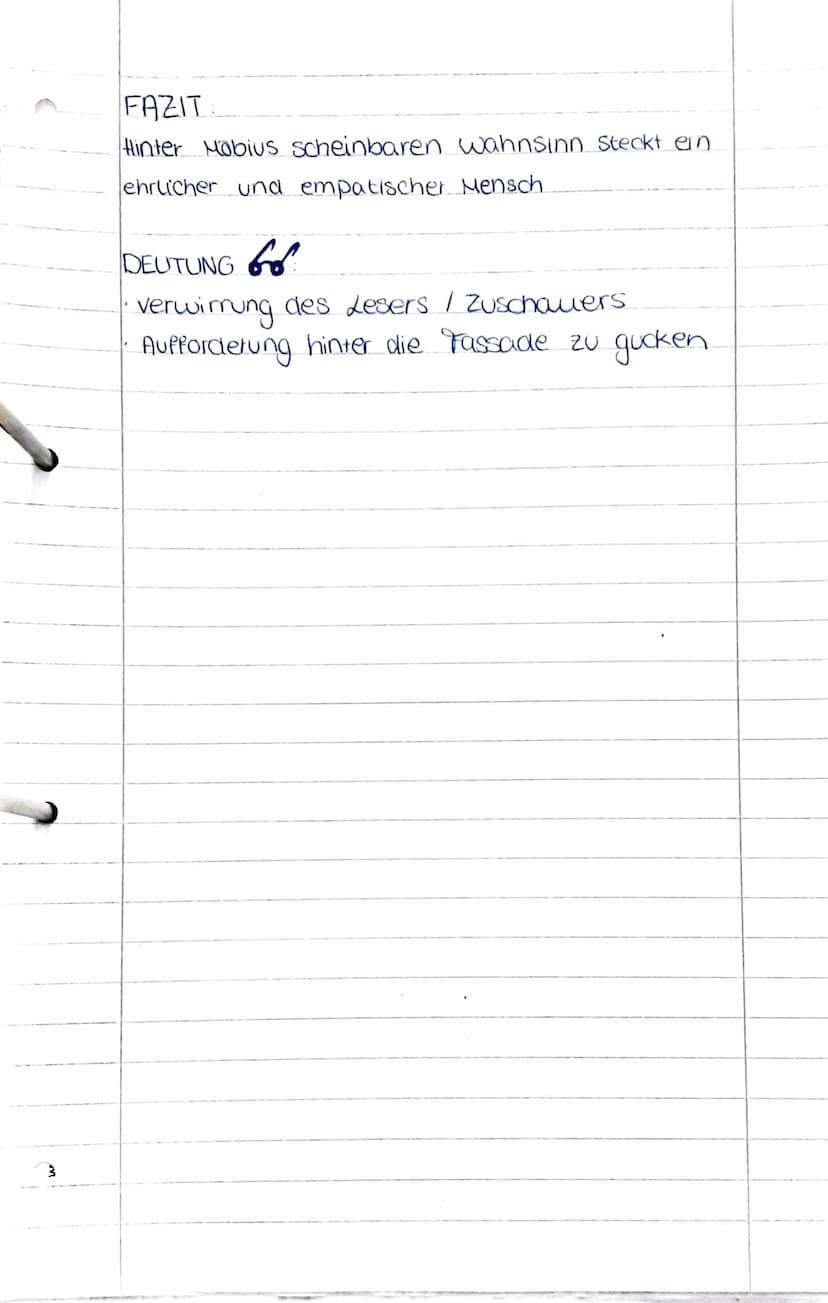 FAZIT:
Hinter Möbius scheinbaren Wahnsinn steckt ein
ehrlicher und empatischer Mensch
DEUTUNG :
· Verwirrung des Lesers / Zuschauers
· Aufforderung hinter die Fassade zu gucken
3